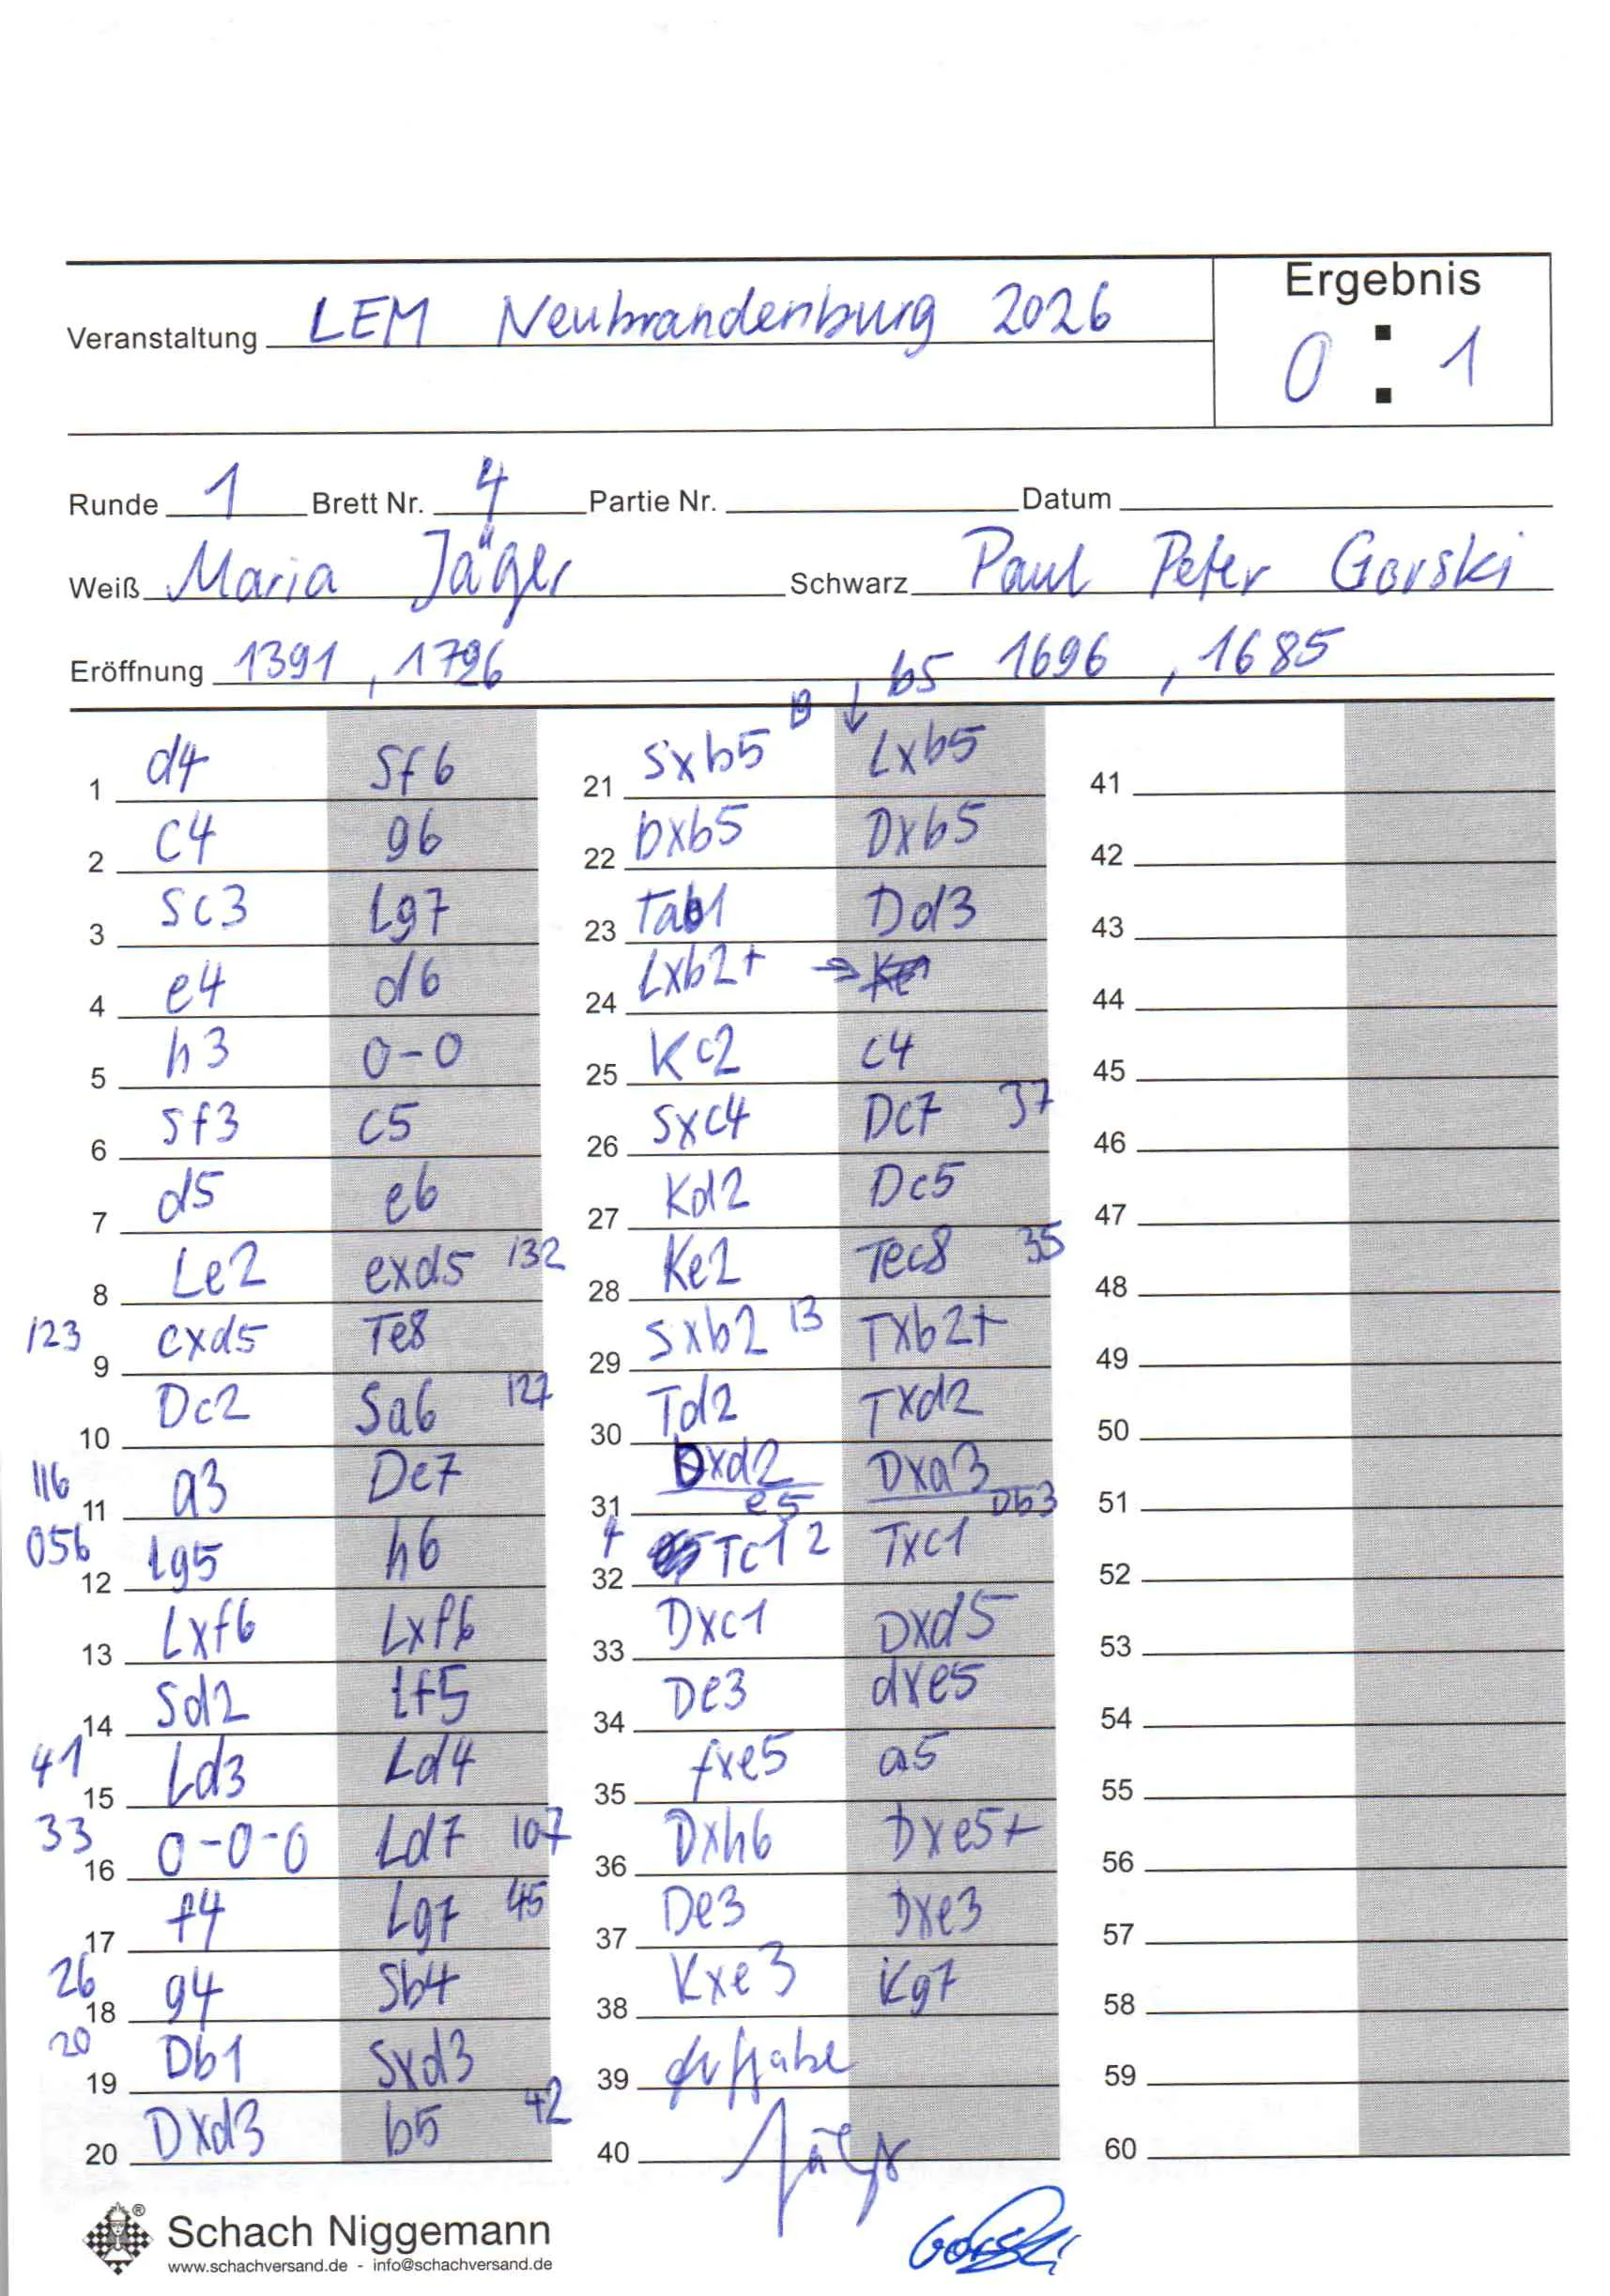 Ergebnis
Veranstaltung LEM Neubrandenburg 2026
0 : 1
Runde 1 Brett Nr. 4 Partie Nr. Datum
Weiß Maria Jäger Schwarz Paul Peter Gorski
Eröffnung 1391, 1796 b5 1696, 1685
1 d4 Sf6
2 c4 g6
3 Sc3 Lg7
4 e4 d6
5 h3 0-0
6 Sf3 c5
7 d5 e6
8 Le2 exd5 132
123 9 cxd5 Te8
10 Dc2 Sa6 127
116 11 a3 De7
056 12 Lg5 h6
13 Lxf6 Lxf6
14 Sd2 Lf5
41 15 Ld3 Ld4
33 16 0-0-0 Ld7 107
17 f4 Lg7 45
26 18 g4 Sb4
20 19 Db1 Sxd3
20 Dxd3 b5 42
21 Sxb5 Lxb5
22 Dxb5 Dxb5
23 Tab1 Dd3
24 Lxb2+
25 Kc2 c4
26 Sxc4 Dc7 37
27 Kd2 Dc5
28 Ke2 Tec8 35
29 Sxb2 13 Txb2+
30 Td2 Txd2
31 Dxd2 Dxa3
e5 Db3
4 32 Tc1 2 Txc1
33 Dxc1 Dxd5
34 De3 dxe5
35 fxe5 a5
36 Dxh6 Dxe5+
37 De3 Dxe3
38 Kxe3 Kg7
39 Aufgabe
40 Jäger
Gorski
41
42
43
44
45
46
47
48
49
50
51
52
53
54
55
56
57
58
59
60
® Schach Niggemann
www.schachversand.de - info@schachversand.de